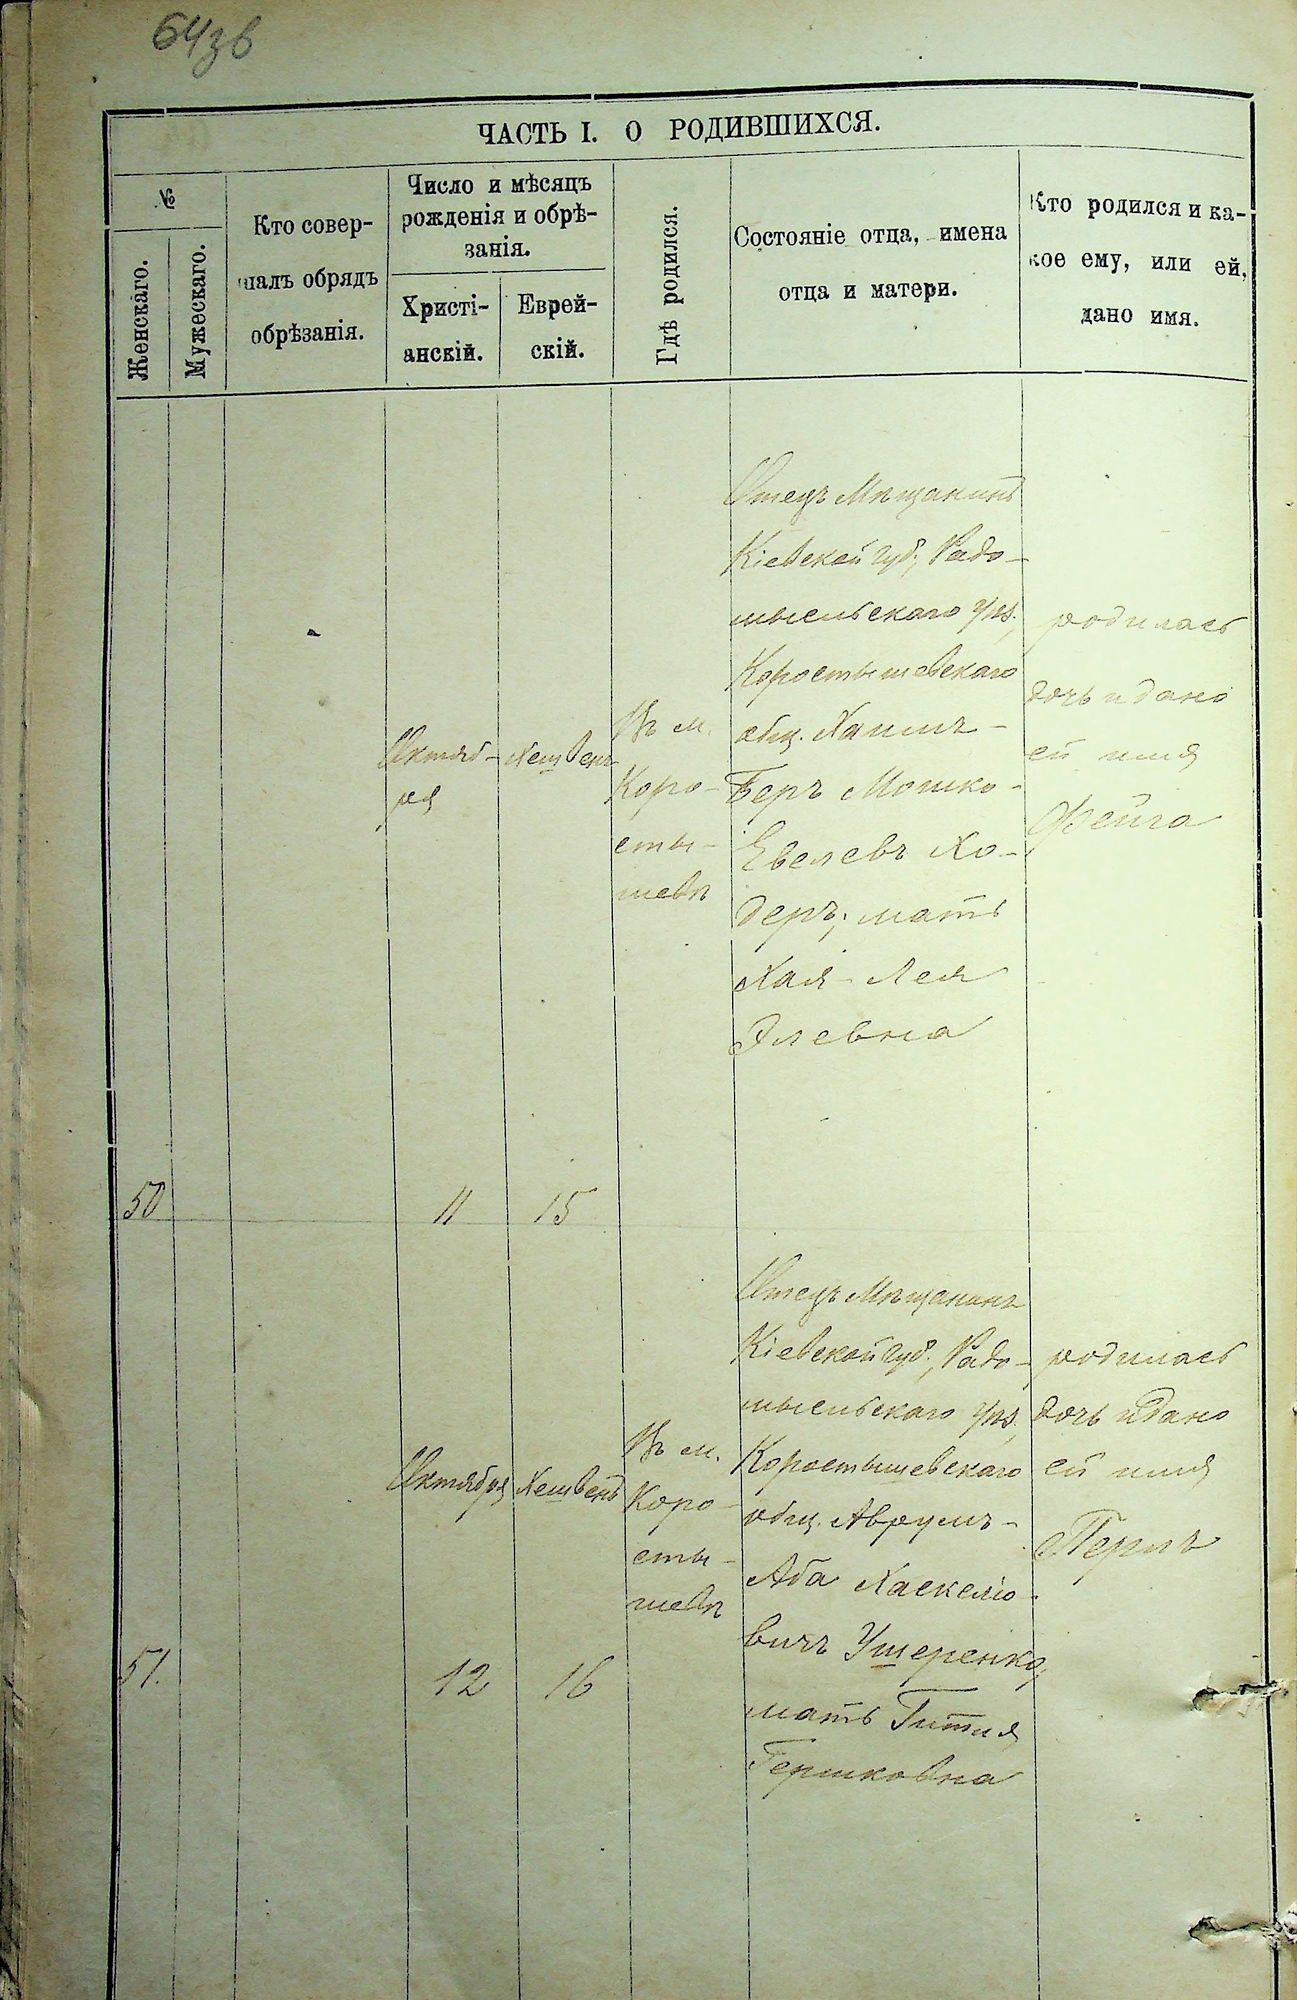 64зв
ЧАСТЬ I. О РОДИВШИХСЯ.
№
Женскаго.
Мужескаго.
Кто совер-
шалъ обрядъ
обрѣзанія.
Число и мѣсяцъ
рожденія и обрѣ-
занія.
Христі-
анскій.
Еврей-
скій.
Гдѣ родился.
Состояніе отца, имена
отца и матери.
Кто родился и ка-
кое ему, или ей,
дано имя.
50
Октяб-
ря
11
Хешвенъ
15
Въ м.
Коро-
сты-
шевѣ
Отецъ Мѣщанинъ
Кіевской губ., Радо-
мысльскаго уѣз.,
Коростышевскаго
общ. Хаимъ-
Беръ Мошко-
Евелевъ Хо-
деръ; мать
Хая-Лея
Элевна
родилась
дочь и дано
ей имя
Фейга
51.
Октября
12
Хешвенъ
16
Въ м.
Коро-
сты-
шевѣ
Отецъ Мѣщанинъ
Кіевской губ., Радо-
мысльскаго уѣз.,
Коростышевскаго
общ. Аврумъ-
Аба Хаскеліо-
вичъ Ушеренко;
мать Гитля
Гершковна
родилась
дочь и дано
ей имя
Перлъ